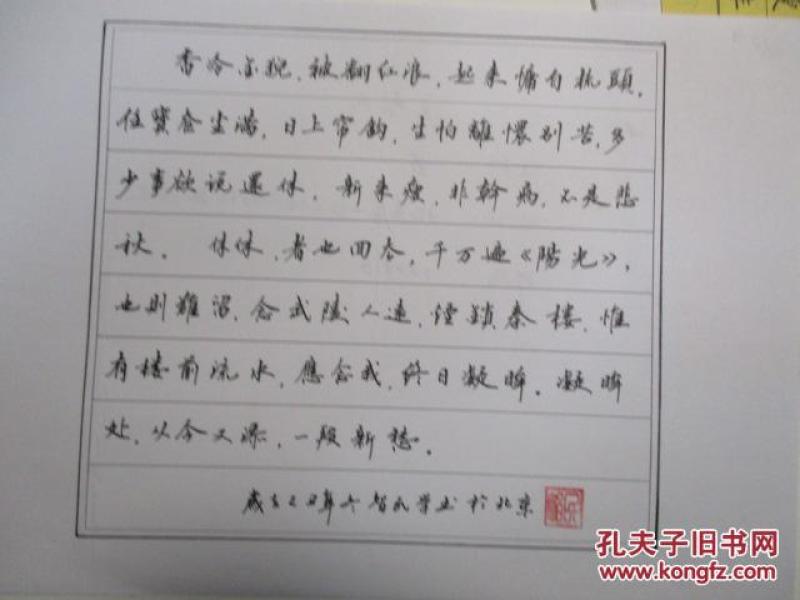 香冷金猊,被翻红浪,起来慵自梳頭,
任寶奁尘满,日上帘鈎,生怕離懷别苦,多
少事欲说還休,新来瘦,非幹病,不是悲
秋。休休,者也回去,千万遍《陽光》,
也则難留,念武陵人远,煙鎖秦楼,惟
有楼前流水,應念我,终日凝眸。凝眸
处,从今又添,一段新愁。
歲在己丑年 书於北京
孔夫子旧书网
www.kongfz.com